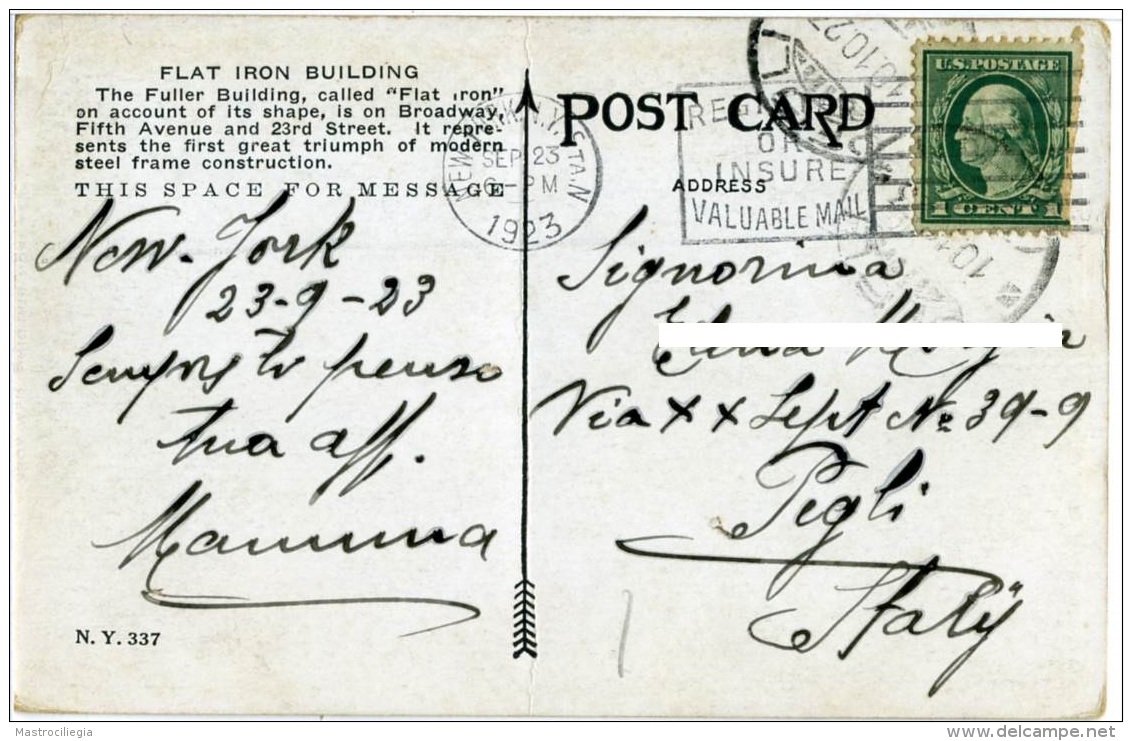 FLAT IRON BUILDING
The Fuller Building, called "Flat Iron"
on account of its shape, is on Broadway,
Fifth Avenue and 23rd Street. It repre-
sents the first great triumph of modern
steel frame construction.
THIS SPACE FOR MESSAGE
New-York
23-9-23
Sempre ti penso
tua aff.
Mamma
N. Y. 337
NEW YORK, N.Y. STA. N
SEP 23
6 - PM
1923
POST CARD
REGISTER
OR
INSURE
VALUABLE MAIL
ADDRESS
U.S. POSTAGE
1 CENT 1
Signorina
Via XX Sept No 39-9
Pegli
Italy
Mastrociliegia
delcampe.net